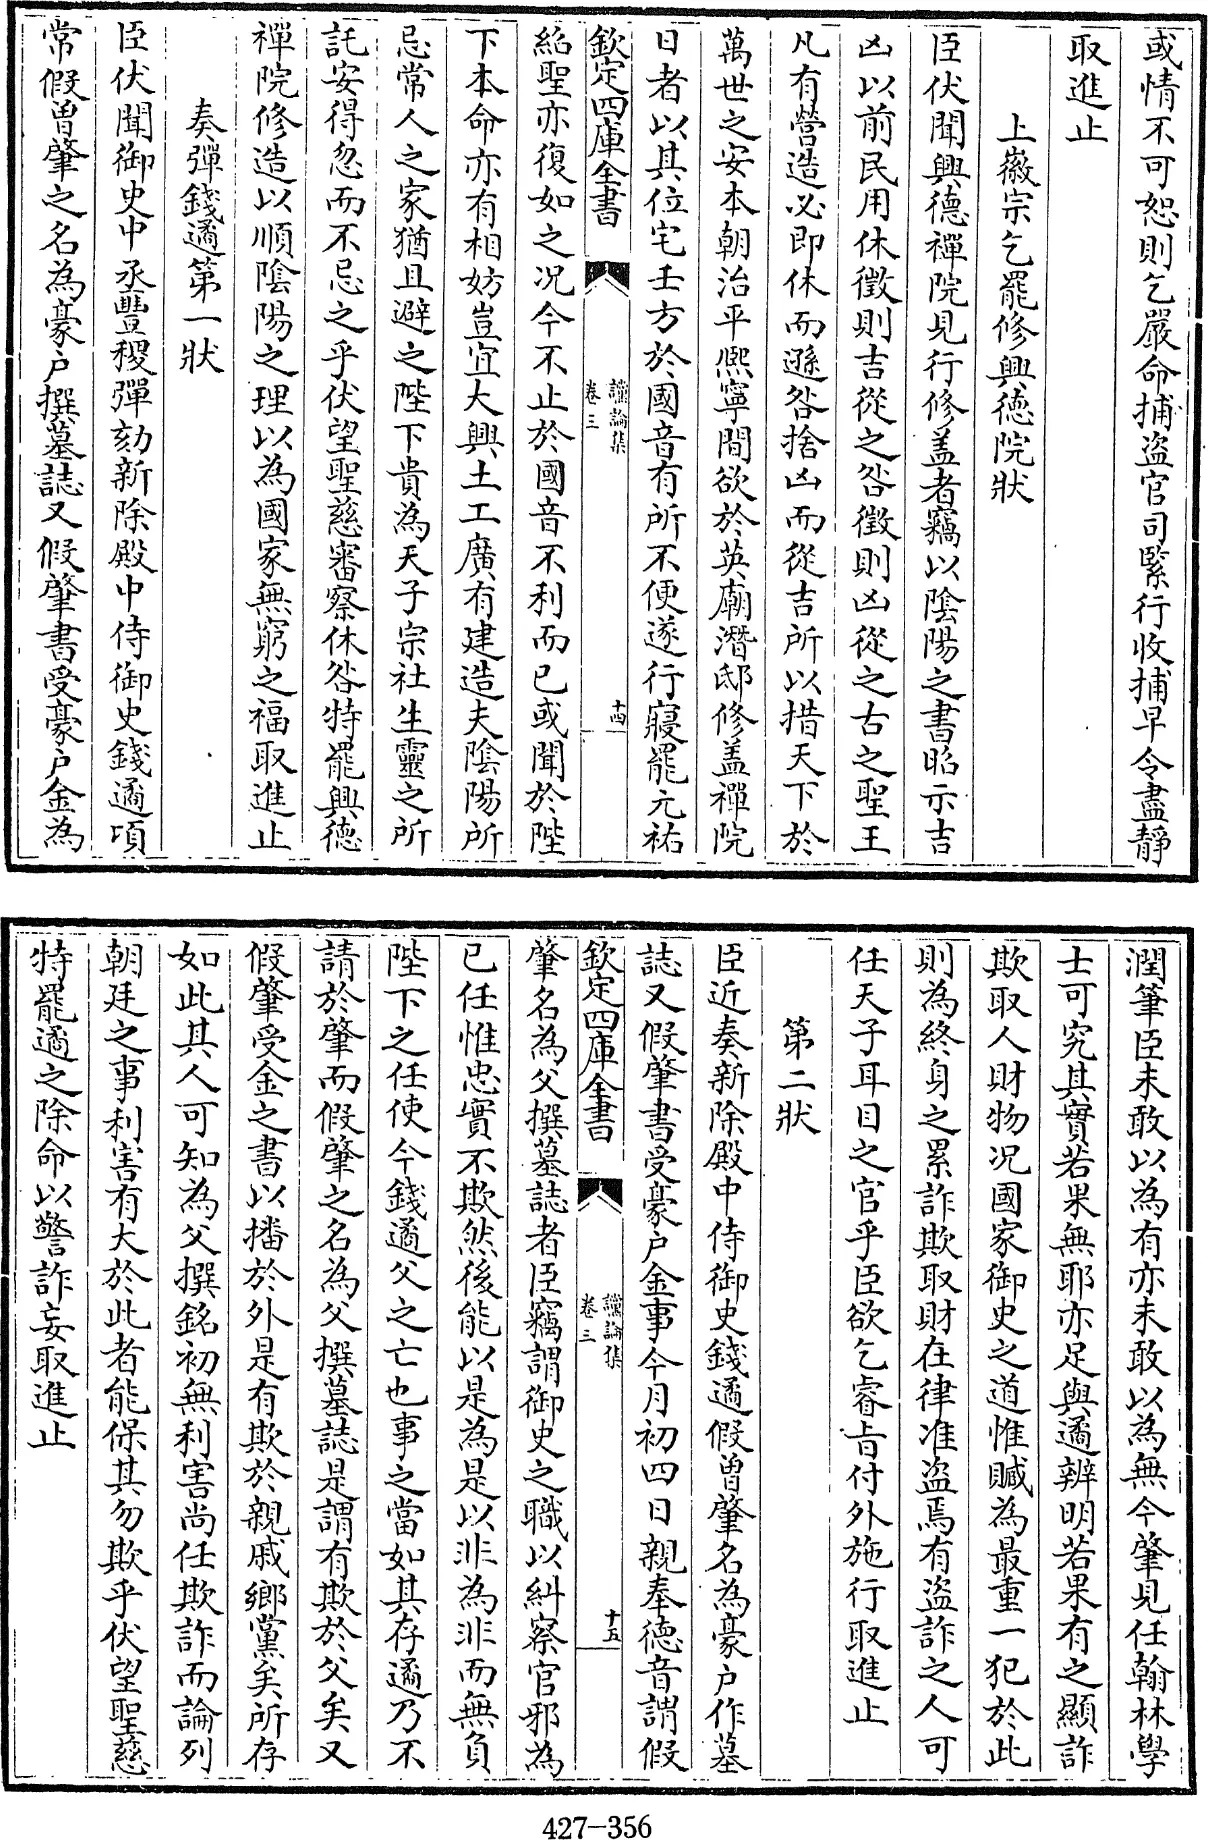 或情不可恕則乞嚴命捕盗官司緊行收捕早令盡靜
取進止
上徽宗乞罷修興德院狀
臣伏聞興德禪院見行修盖者竊以陰陽之書昭示吉
凶以前民用休徴則吉從之咎徴則凶從之古之聖王
凡有營造必即休而遜咎捨凶而從吉所以措天下於
萬世之安本朝治平熈寧間欲於英廟潛邸修盖禪院
日者以其位宅壬方於國音有所不便遂行寢罷元祐
欽定四庫全書
讜論集
卷三
十四
紹聖亦復如之况今不止於國音不利而已或聞於陛
下本命亦有相妨豈宜大興土工廣有建造夫陰陽所
忌常人之家猶且避之陛下貴為天子宗社生靈之所
託安得忽而不忌之乎伏望聖慈審察休咎特罷興徳
禪院修造以順陰陽之理以為國家無窮之福取進止
奏彈錢遹第一狀
臣伏聞御史中丞豐稷彈劾新除殿中侍御史錢遹項
常假曽肇之名為豪户撰墓誌又假肇書受豪户金為
潤筆臣未敢以為有亦未敢以為無今肇見任翰林學
士可究其實若果無耶亦足與遹辨明若果有之顯詐
欺取人財物况國家御史之道惟贓為最重一犯於此
則為終身之累詐欺取財在律准盗焉有盗詐之人可
任天子耳目之官乎臣欲乞睿旨付外施行取進止
第二狀
臣近奏新除殿中侍御史錢遹假曽肇名為豪户作墓
誌又假肇書受豪户金事今月初四日親奉徳音謂假
欽定四庫全書
讜論集
卷三
十五
肇名為父撰墓誌者臣竊謂御史之職以糾察官邪為
已任惟忠實不欺然後能以是為是以非為非而無負
陛下之任使今錢遹父之亡也事之當如其存遹乃不
請於肇而假肇之名為父撰墓誌是謂有欺於父矣又
假肇受金之書以播於外是有欺於親戚鄉黨矣所存
如此其人可知為父撰銘初無利害尚任欺詐而論列
朝廷之事利害有大於此者能保其勿欺乎伏望聖慈
特罷遹之除命以警詐妄取進止
427-356